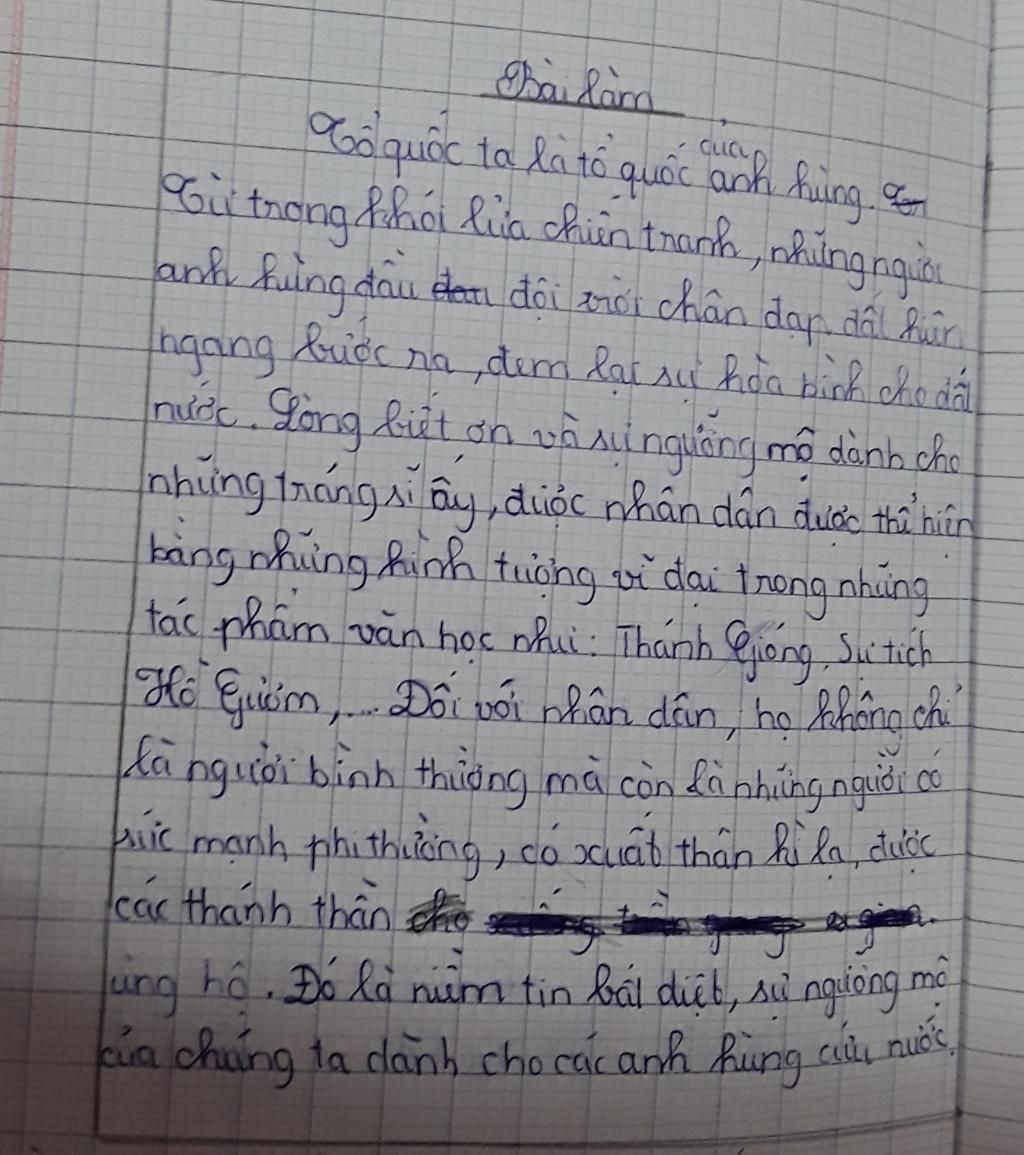 Bài làm
Tổ quốc ta là tổ quốc của anh hùng.
Từ trong khói lửa chiến tranh, những người
anh hùng đầu đội trời chân đạp đất hiên
ngang bước ra, đem lại sự hòa bình cho đất
nước. Lòng biết ơn và sự ngưỡng mộ dành cho
những tráng sĩ ấy, được nhân dân được thể hiện
bằng những hình tượng vĩ đại trong những
tác phẩm văn học như: Thánh Gióng, Sự tích
Hồ Gươm,... Đối với nhân dân, họ không chỉ
là người bình thường mà còn là những người có
sức mạnh phi thường, có xuất thân kì lạ, được
các thánh thần
ủng hộ. Đó là niềm tin bất diệt, sự ngưỡng mộ
của chúng ta dành cho các anh hùng cứu nước.